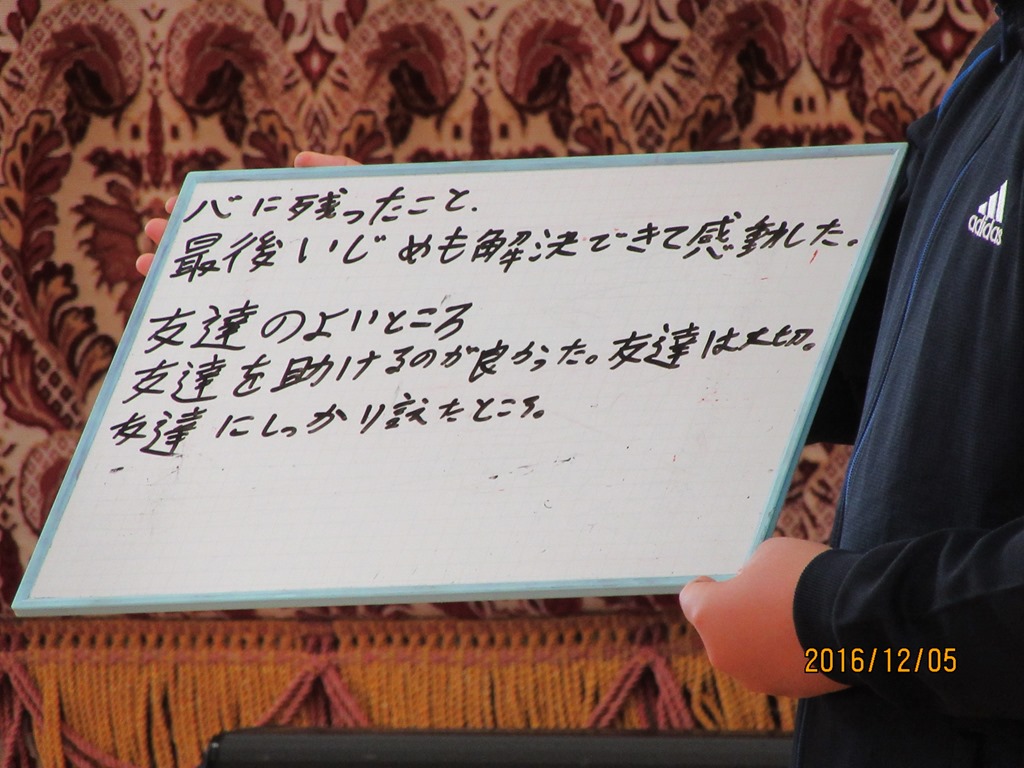 心に残ったこと.
最後いじめも解決できて感動した。
友達のよいところ
友達を助けるのが良かった。友達は大切。
友達にしっかり言えたところ。
adidas
2016/12/05